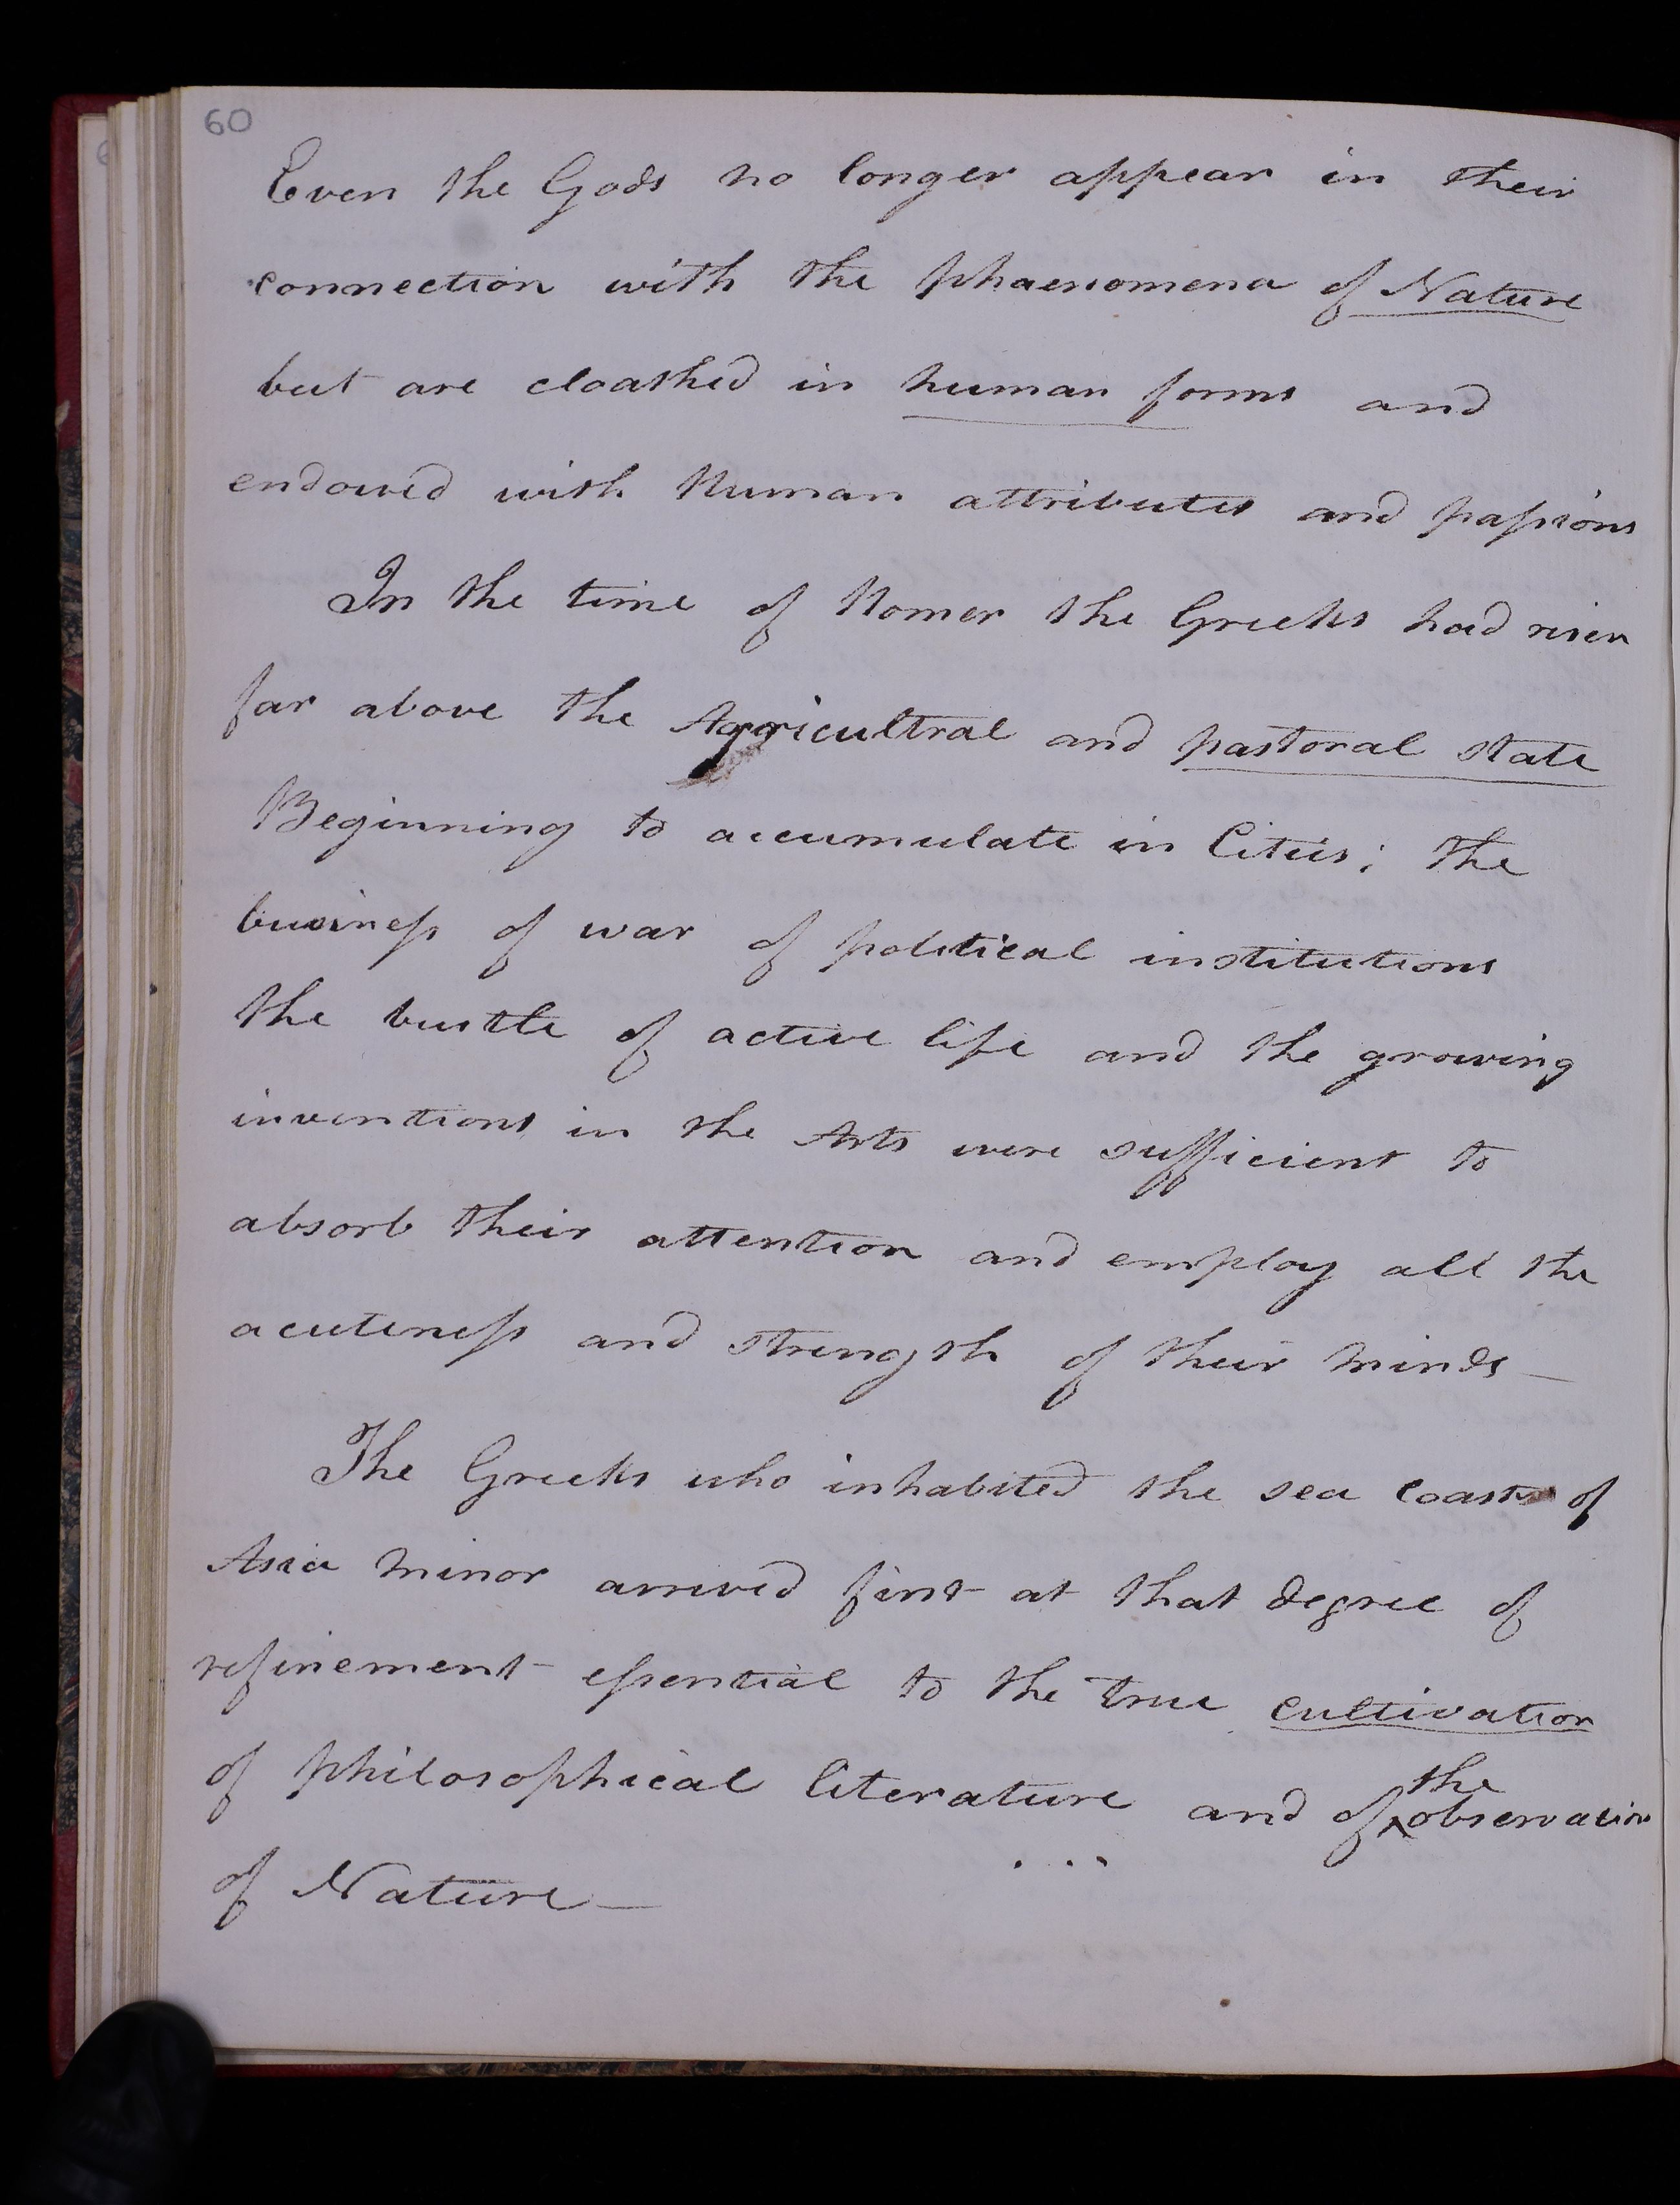 60
Even the Gods no longer appear in their
connection with the phaenomena of Nature
but are cloathed in human forms and
endowed with Human attributes and passions
In the time of Homer the Greeks had risen
far above the Agricultral and pastoral state
Beginning to accumulate in Cities; The
business of war of political institutions
the bustle of active life and the growing
inventions in the Arts were sufficient to
absorb their attention and employ all the
acuteness and strength of their minds —
The Greeks who inhabited the sea coast of
Asia Minor arrived first at that degree of
refinement essential to the true cultivation
of philosophical literature and of the observation
of Nature —